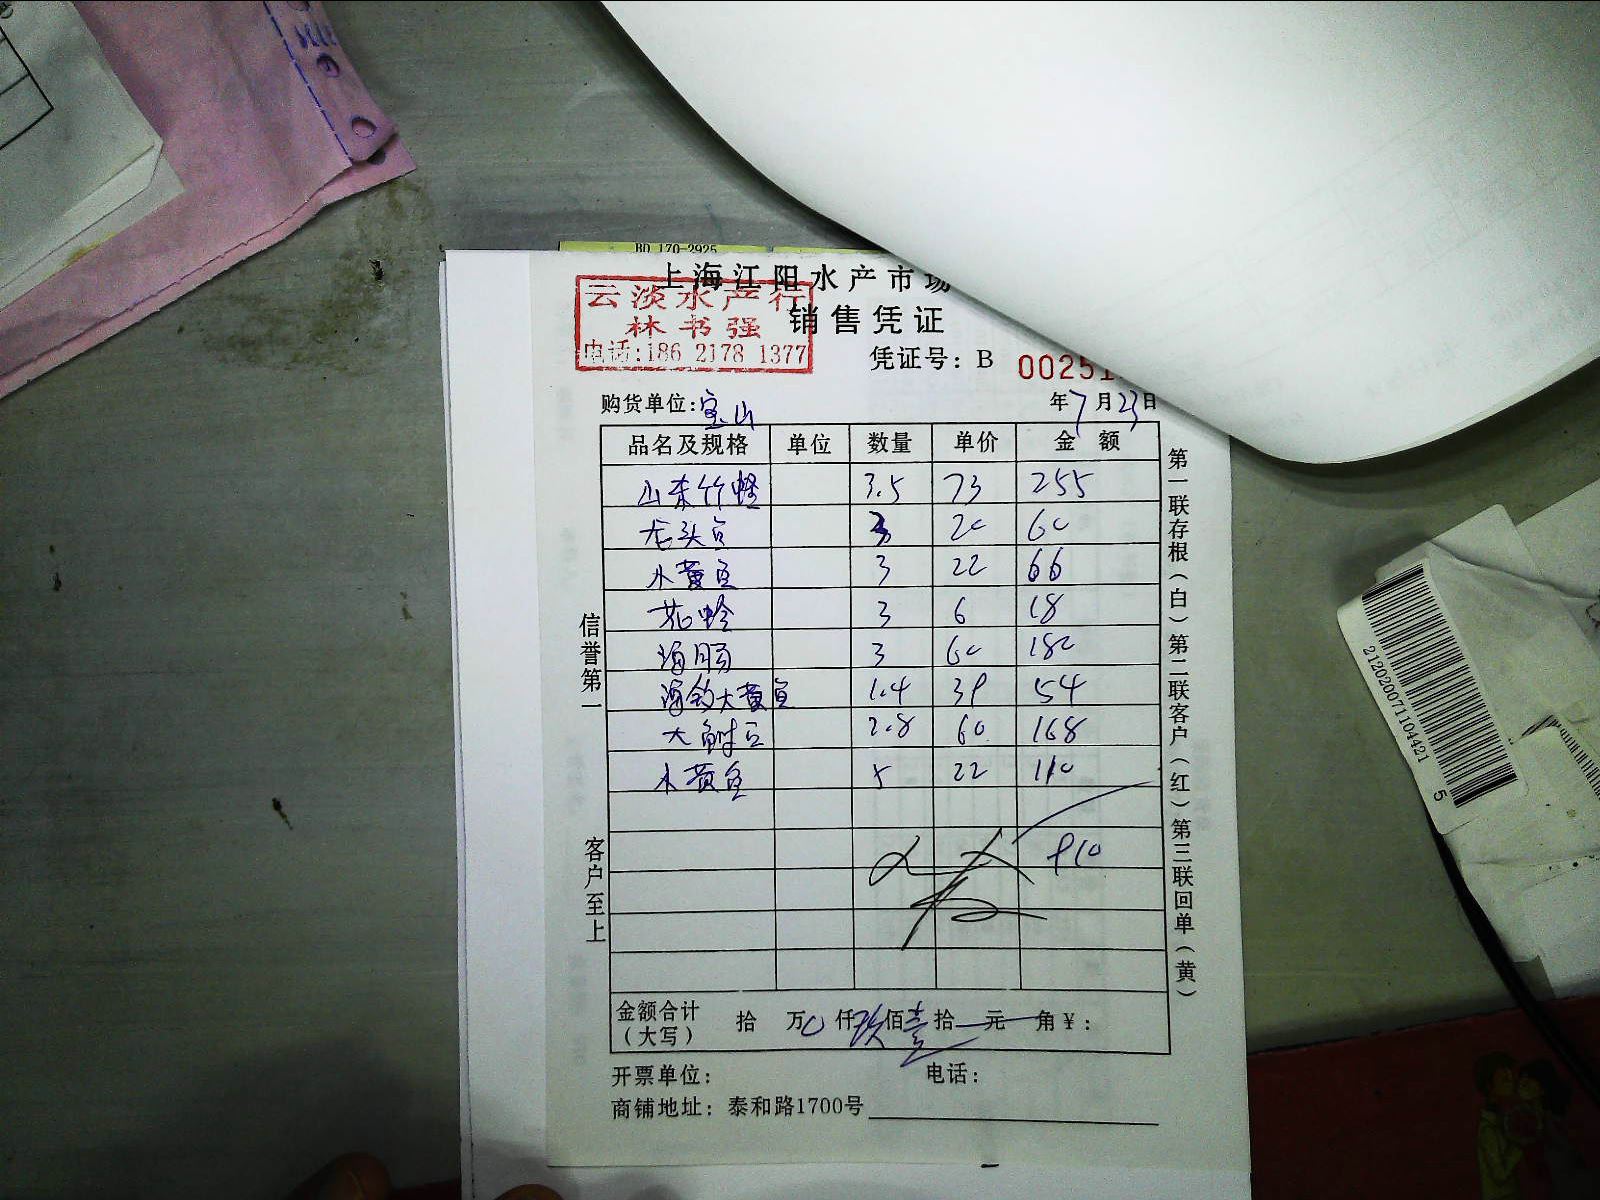 BD 170-2925
上海江阳水产市场
云淡水产行
林书强
电话:186 2178 1377
销售凭证
凭证号：B 00251
购货单位:宝山 年7月23日
品名及规格 单位 数量 单价 金额
山东竹蛏 3.5 73 255
龙头鱼 3 20 60
小黄鱼 3 22 66
花蛤 3 6 18
海肠 3 60 180
海钓大黄鱼 1.4 39 54
大鲋鱼 2.8 60 168
小黄鱼 5 22 110
910
金额合计（大写） 拾 万 0 仟 玖 佰 壹 拾 元 角 ¥：
开票单位： 电话：
商铺地址：泰和路1700号
信誉第一
客户至上
第一联存根（白）第二联客户（红）第三联回单（黄）
2120200711044215